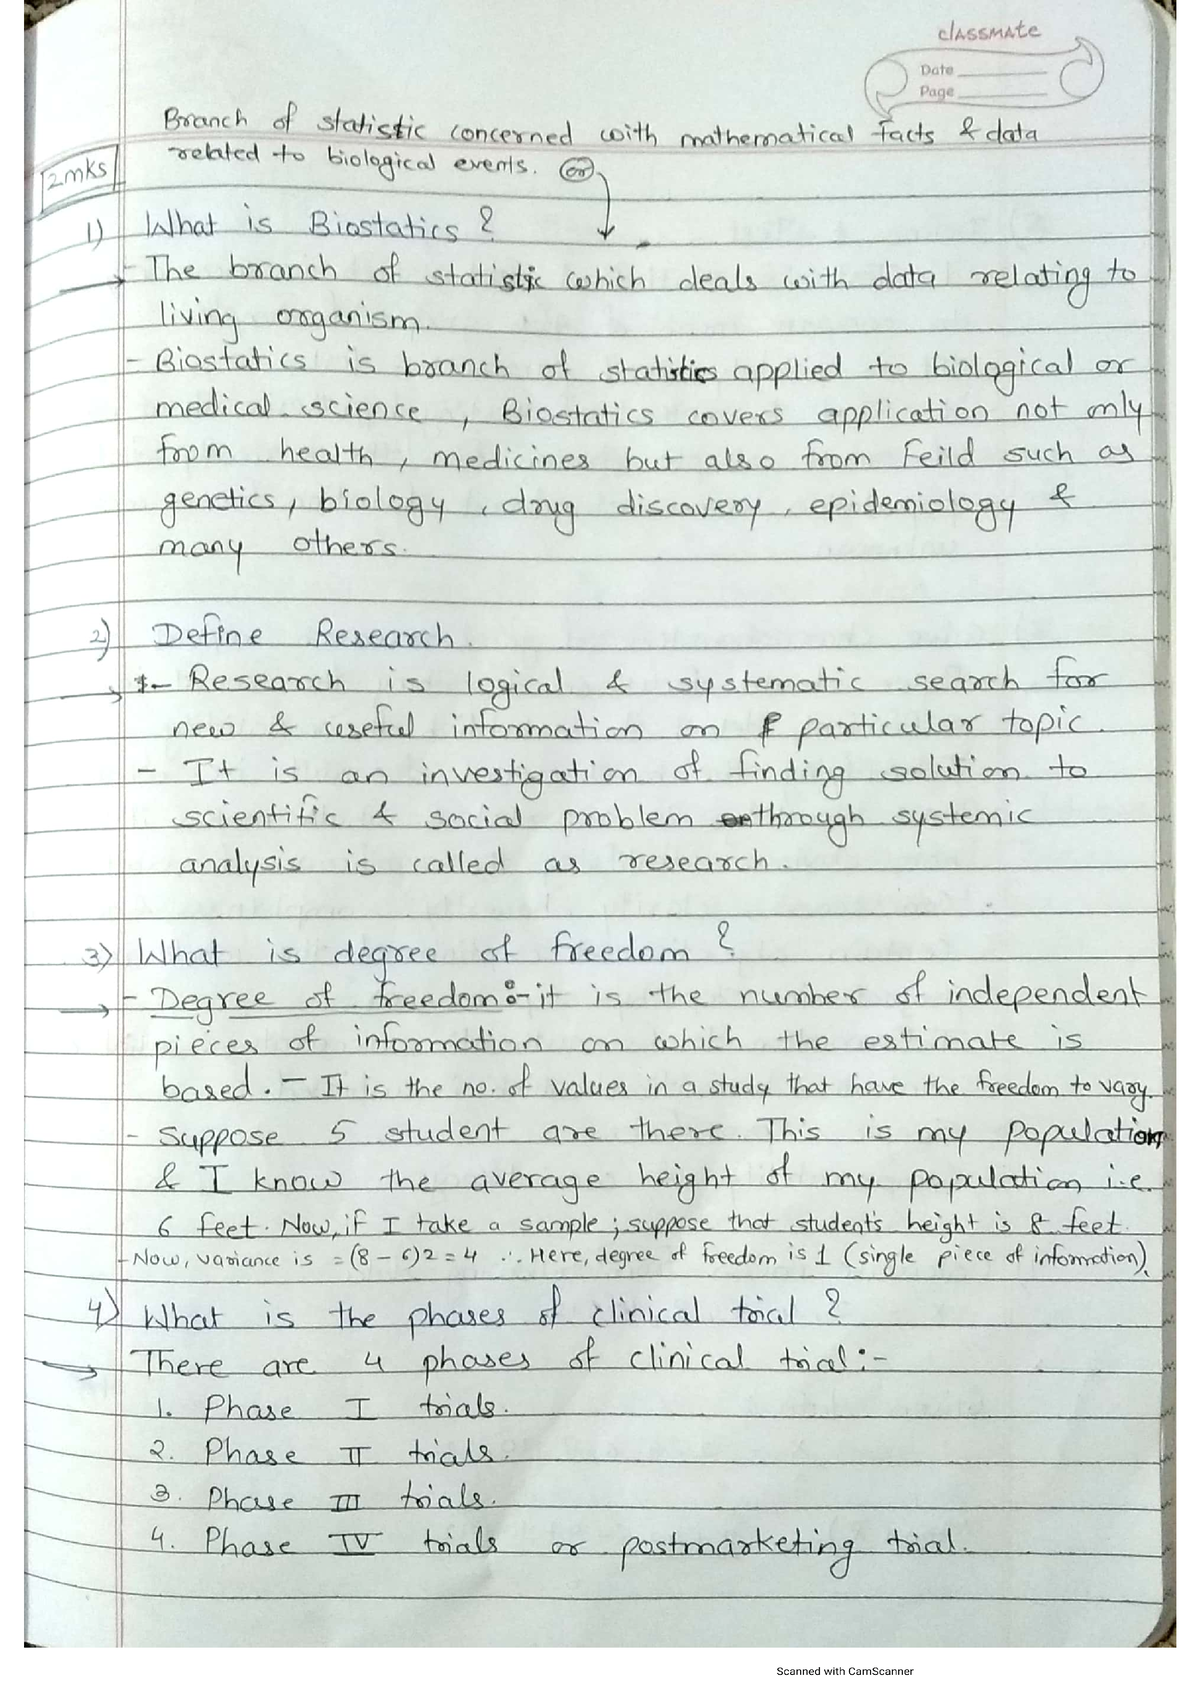 classmate
Date
Page
Branch of statistic concerned with mathematical facts & data
related to biological events. (or)
2mks
1) What is Biostatics ?
- The branch of statistic which deals with data relating to
living organism.
- Biostatics is branch of statistics applied to biological or
medical science, Biostatics covers application not only
from health, medicines but also from Feild such as
genetics, biology, drug discovery, epidemiology &
many others.
2) Define Research.
- Research is logical & systematic search for
new & useful information on particular topic.
- It is an investigation of finding solution to
scientific & social problem through systemic
analysis is called as research.
3) What is degree of freedom ?
- Degree of freedom :- it is the number of independent
pieces of information on which the estimate is
based. - It is the no. of values in a study that have the freedom to vary.
- Suppose 5 student are there. This is my population
& I know the average height of my population i.e.
6 feet. Now, if I take a sample; suppose that student's height is 8 feet.
- Now, variance is = (8 - 6)2 = 4 ∴ Here, degree of freedom is 1 (single piece of information).
4) What is the phases of clinical trial ?
There are 4 phases of clinical trial :-
1. Phase I trials.
2. Phase II trials.
3. Phase III trials.
4. Phase IV trials or postmarketing trial.
Scanned with CamScanner